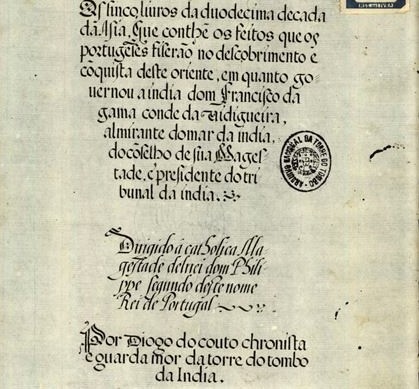 Os sinco livros da duodecima decada
dA Asia, Que conthẽ os feitos que os
portugeses fiserão no descobrimento e
cõquista deste oriente, em quanto go-
uernou a india dom Francisco da
gama conde da Vidigueira,
almirante do mar da india,
do cõselho de sua Mages-
tade, e presidente do tri
bunal da india.
Dirigido á catholica Ma
gestade delrei dom Phili
ppe segundo deste nome
Rei de Portugal
Por Diogo do couto chronista
e guarda mor da torre do tombo
da India.
ARQUIVO NACIONAL DA TORRE DO TOMBO